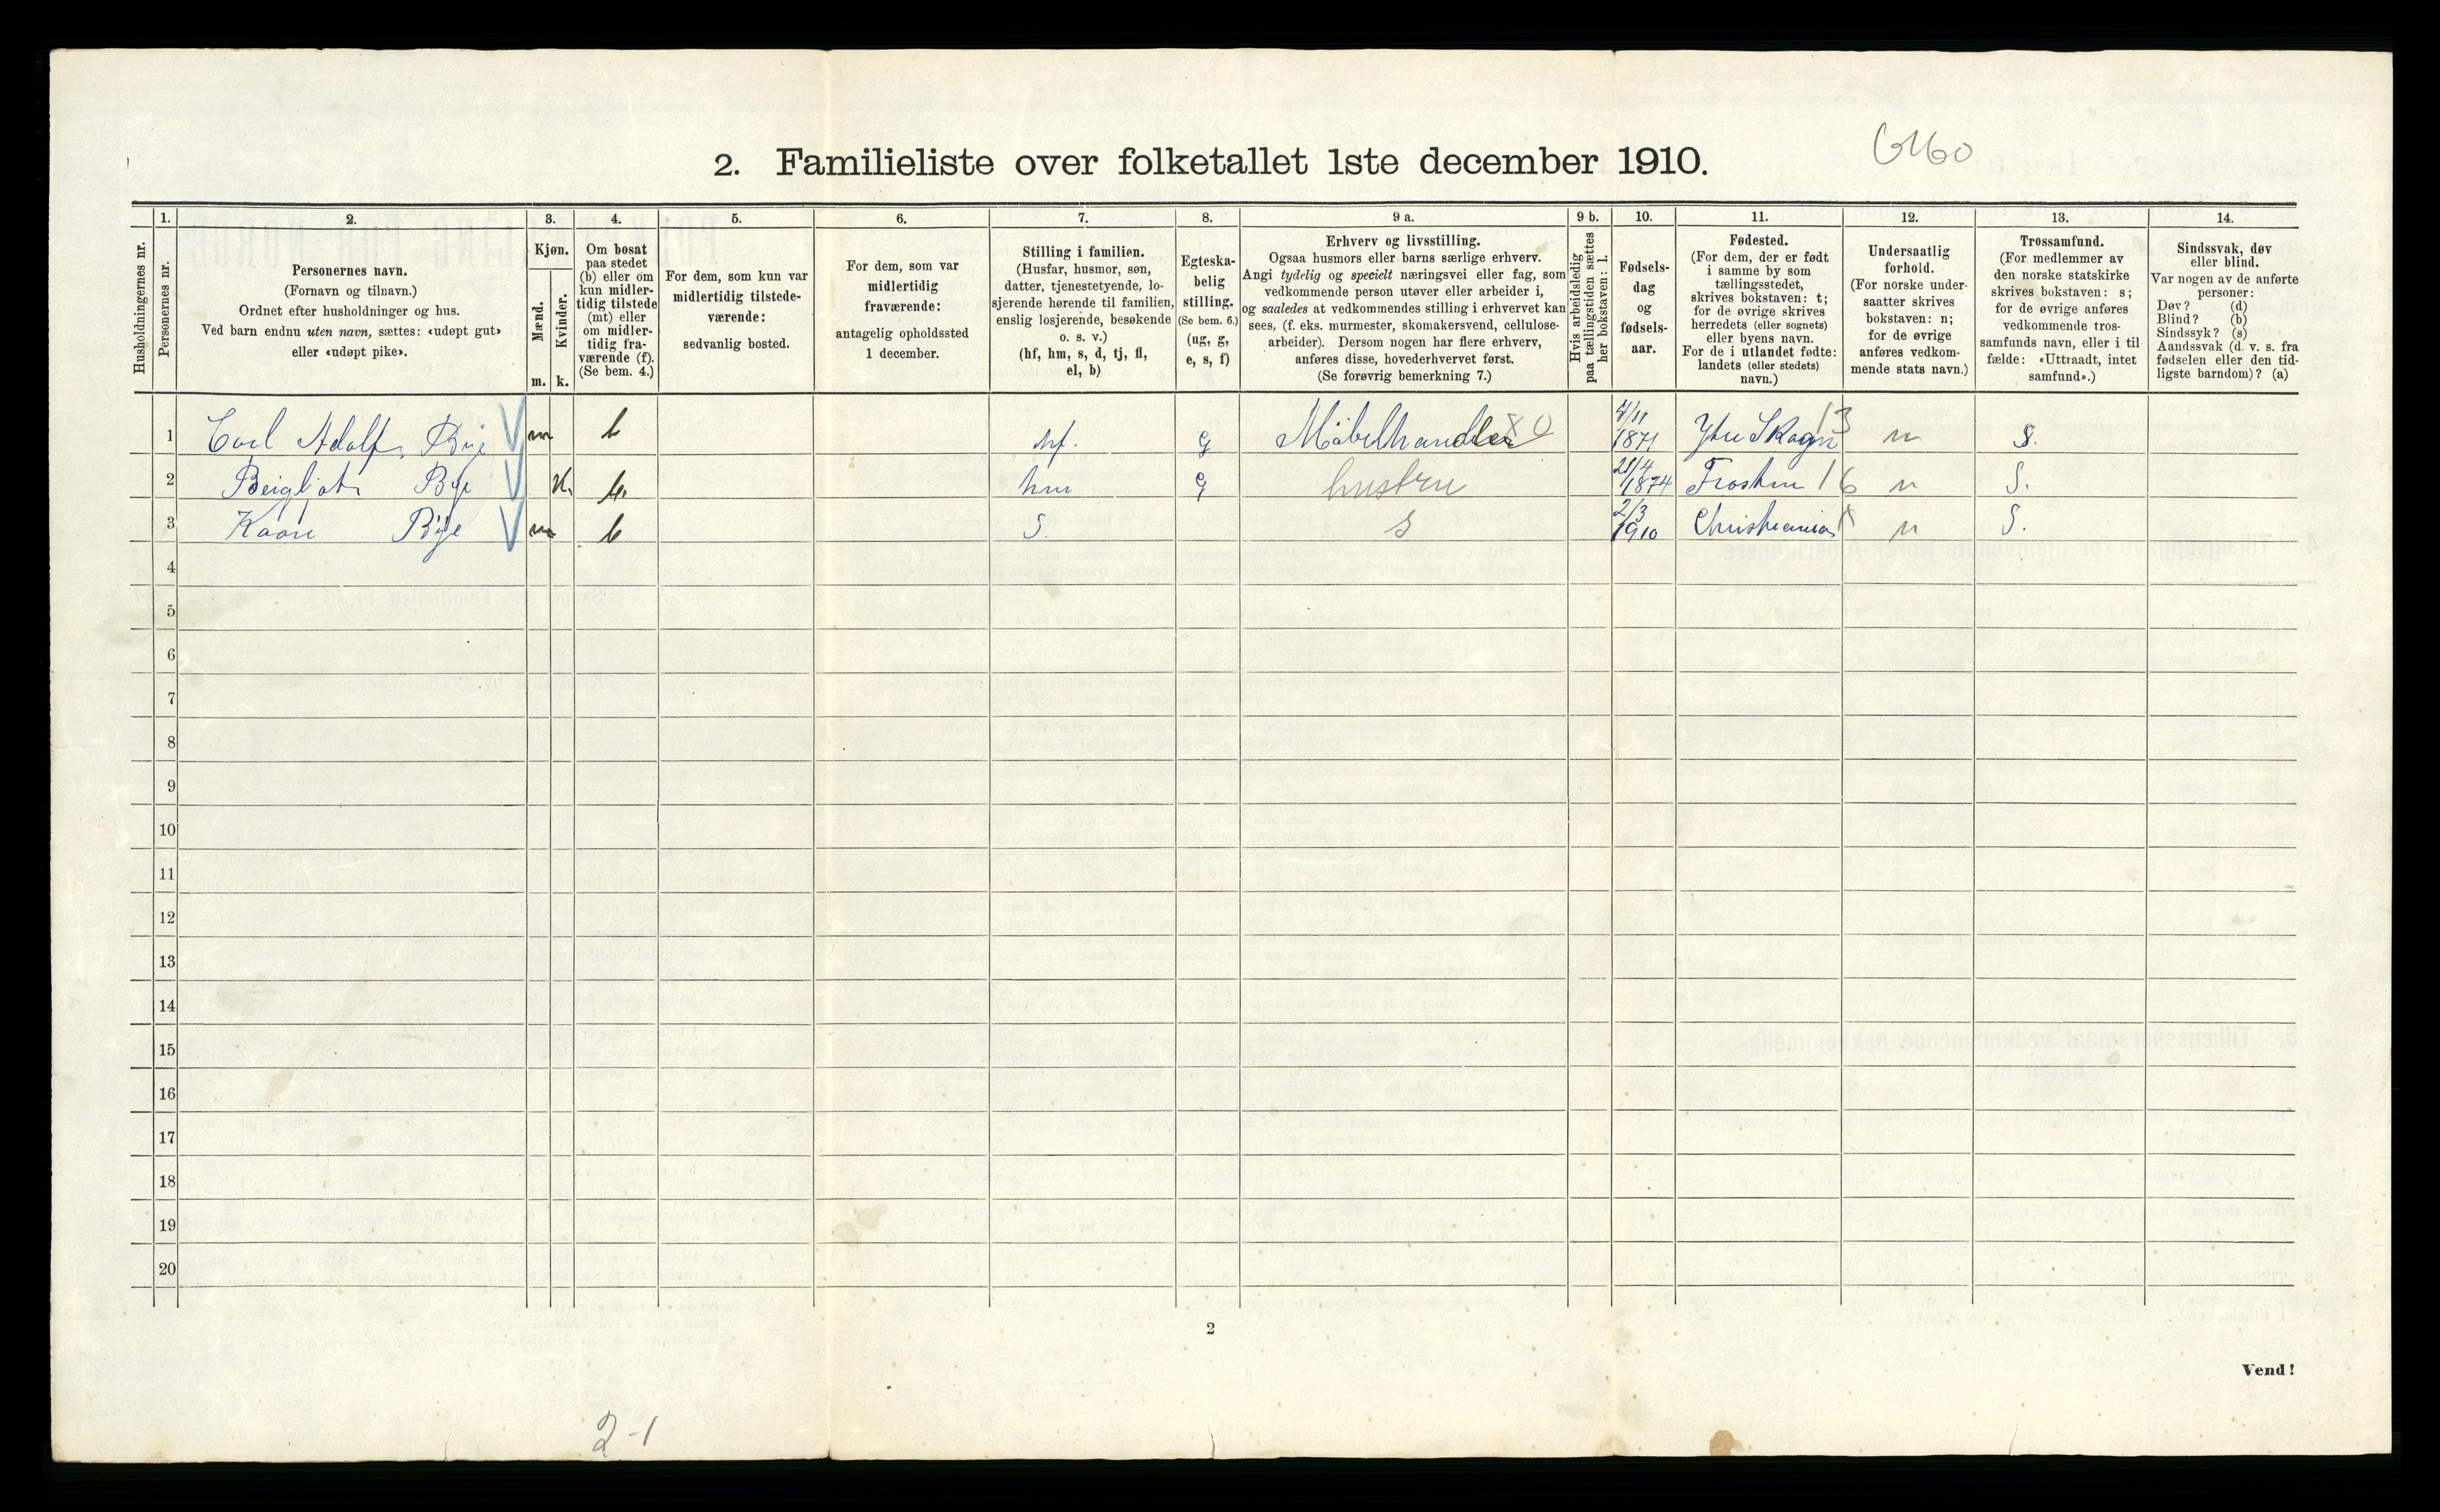 2. Familieliste over folketallet 1ste december 1910.
Husholdningernes nr.
1.
Personernes nr.
2.
Personernes navn.
(Fornavn og tilnavn.)
Ordnet efter husholdninger og hus.
Ved barn endnu uten navn, sættes: «udøpt gut»
eller «udøpt pike».
3.
Kjøn.
Mænd.
Kvinder.
m. k.
4.
Om bosat
paa stedet
(b) eller om
kun midler-
tidig tilstede
(mt) eller
om midler-
tidig fra-
værende (f).
(Se bem. 4.)
5.
For dem, som kun var
midlertidig tilstede-
værende:
sedvanlig bosted.
6.
For dem, som var
midlertidig
fraværende:
antagelig opholdssted
1 december.
7.
Stilling i familien.
(Husfar, husmor, søn,
datter, tjenestetyende, lo-
sjerende hørende til familien,
enslig losjerende, besøkende
o. s. v.)
(hf, hm, s, d, tj, fl,
el, b)
8.
Egteska-
belig
stilling.
(Se bem. 6.)
(ug, g,
e, s, f)
9 a.
Erhverv og livsstilling.
Ogsaa husmors eller barns særlige erhverv.
Angi tydelig og specielt næringsvei eller fag, som
vedkommende person utøver eller arbeider i,
og saaledes at vedkommendes stilling i erhvervet kan
sees, (f. eks. murmester, skomakersvend, cellulose-
arbeider). Dersom nogen har flere erhverv,
anføres disse, hovederhvervet først.
(Se forøvrig bemerkning 7.)
9 b.
Hvis arbeidsledig
paa tællingstiden sættes
her bokstaven: l.
10.
Fødsels-
dag
og
fødsels-
aar.
11.
Fødested.
(For dem, der er født
i samme by som
tællingsstedet,
skrives bokstaven: t;
for de øvrige skrives
herredets (eller sognets)
eller byens navn.
For de i utlandet fødte:
landets (eller stedets)
navn.)
12.
Undersaatlig
forhold.
(For norske under-
saatter skrives
bokstaven: n;
for de øvrige
anføres vedkom-
mende stats navn.)
13.
Trossamfund.
(For medlemmer av
den norske statskirke
skrives bokstaven: s;
for de øvrige anføres
vedkommende tros-
samfunds navn, eller i til
fælde: «Uttraadt, intet
samfund».)
14.
Sindssvak, døv
eller blind.
Var nogen av de anførte
personer:
Døv? (d)
Blind? (b)
Sindssyk? (s)
Aandssvak (d. v. s. fra
fødselen eller den tid-
ligste barndom)? (a)
1 Carl Adolf Bye m b hf. G Möbelhandler x 0 4/11 1871 Ytre Skogn 13 n S.
2 Bergljot Bye k. b. hm G hustru 21/4 1874 Frosten 16 n S.
3 Kaare Bye m b S. S 2/3 1910 Christiania x n S.
4
5
6
7
8
9
10
11
12
13
14
15
16
17
18
19
20
2
Vend!
2-1